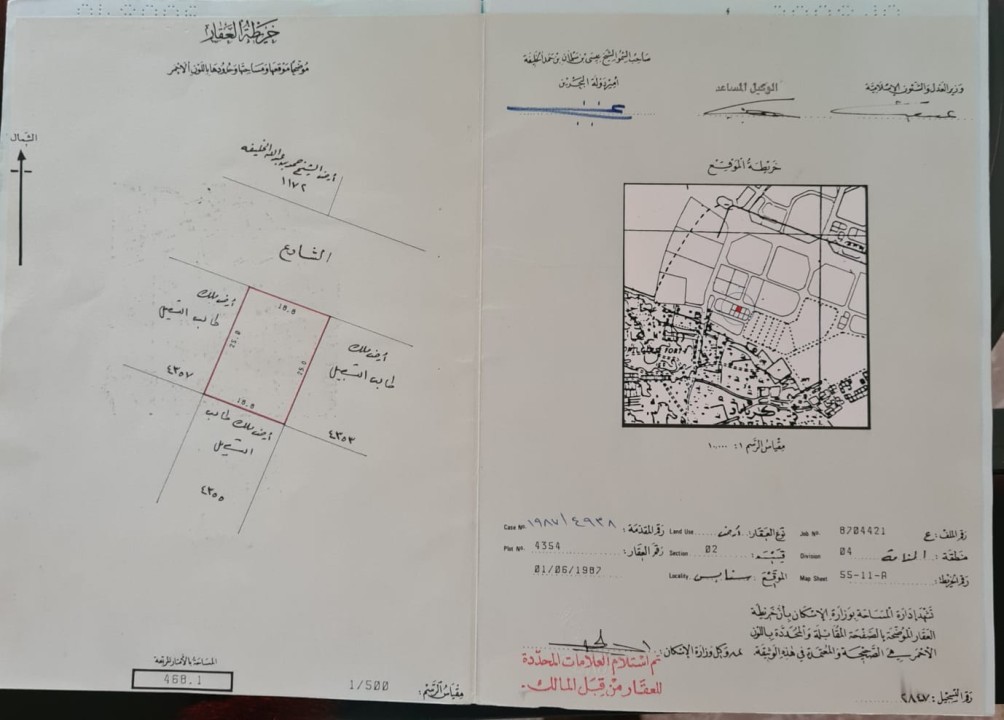 خريطة العقار
موضحا موقعها ومساحتها وحدودها باللون الأحمر
الشمال
أرض الشيخ حمد بن عبدالله الخليفه
١١٧٢
الشارع
أرض ملك
طالب التسجيل
٤٣٥٧
18.0
25.0
25.0
18.0
أرض ملك
طالب التسجيل
٤٣٥٣
أرض ملك طالب
التسجيل
٤٣٥٥
المساحة بالأمتار المربعة
468.1
مقياس الرسم: 1/500
صاحب السمو الشيخ عيسى بن سلمان بن حمد الخليفة
أمير دولة البحرين
الوكيل المساعد
وزير العدل والشئون الإسلامية
خريطة الموقع
مقياس الرسم ١: ١٠٠٠٠
رقم الملف: ع 8704421 Job Nº.
نوع العقار: أرض Land Use
رقم المقدمة: ١٩٨٧/٤٩٣٨ Case Nº.
منطقة: المنامة 04 Division
قسيمة: 02 Section
رقم العقار: 4354 Plot Nº.
رقم الخريطة: SS-11-A Map Sheet
الموقع: سنابس Locality
01/06/1987
تشهد إدارة المساحة بوزارة الإسكان بأن خريطة
العقار الموضحة بالصفحة المقابلة والمحددة باللون
الأحمر هي الصحيحة والمعتمدة في هذه الوثيقة.
وكيل وزارة الإسكان:
تم استلام العلامات المحددة
للعقار من قبل المالك.
رقم التسجيل: ٢٨٤٧